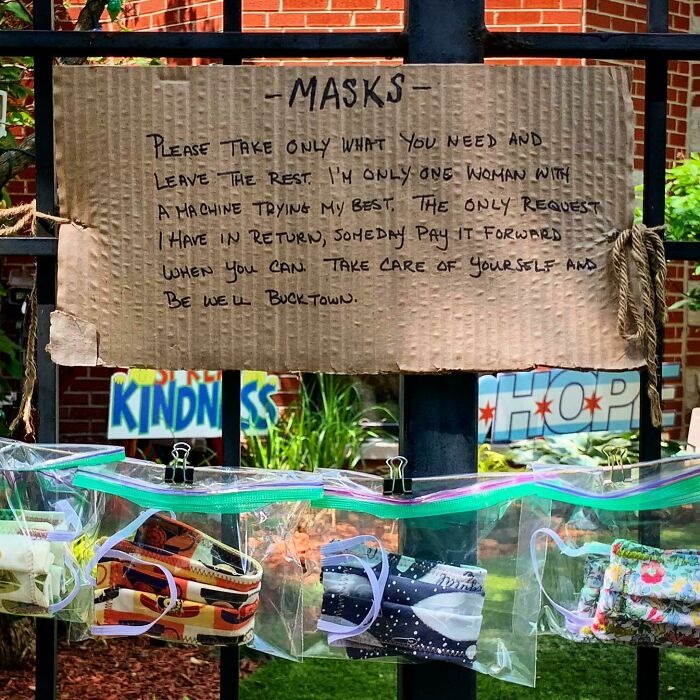 -MASKS-
PLEASE TAKE ONLY WHAT YOU NEED AND
LEAVE THE REST. I'M ONLY ONE WOMAN WITH
A MACHINE TRYING MY BEST. THE ONLY REQUEST
I HAVE IN RETURN, SOMEDAY PAY IT FORWARD
WHEN YOU CAN. TAKE CARE OF YOURSELF AND
BE WELL BUCKTOWN.
KINDNESS
HOPE